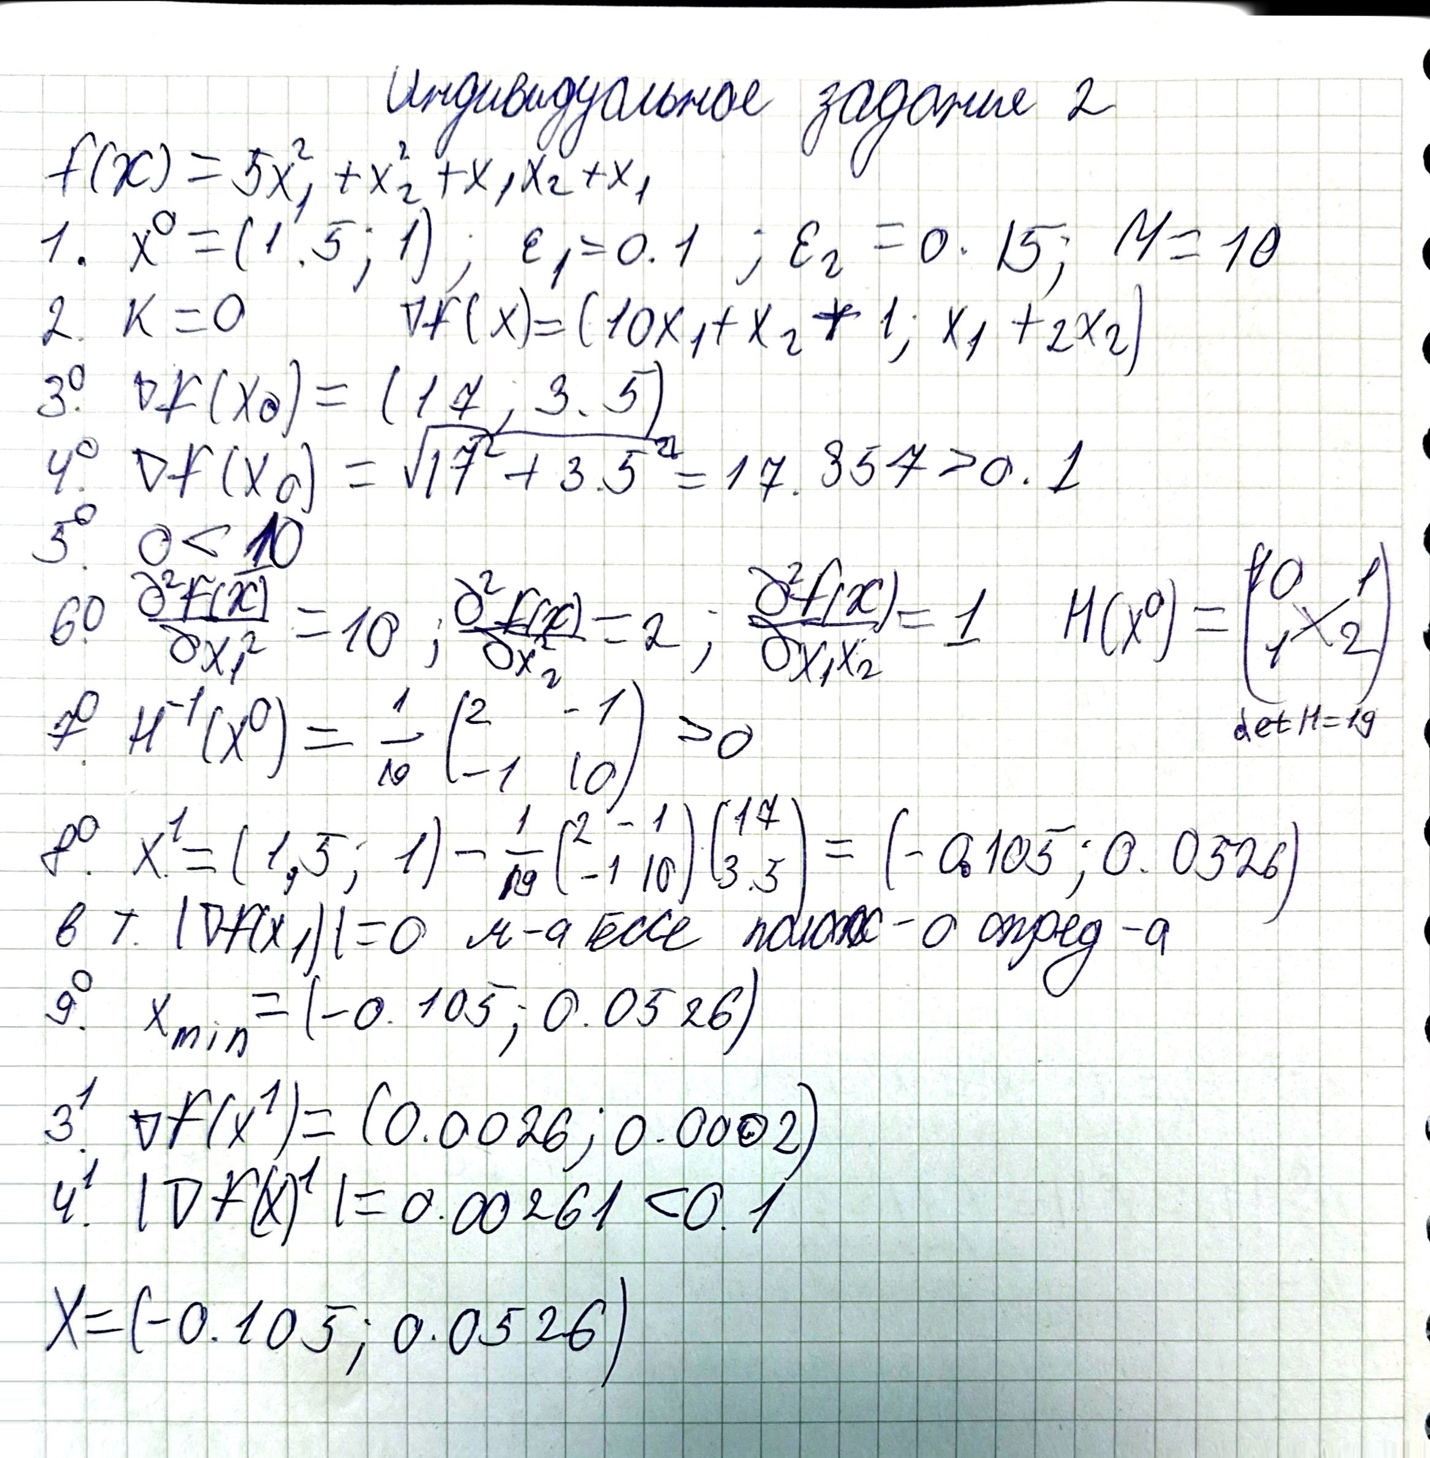 Индивидуальное задание 2
f(x) = 5x₁² + x₂² + x₁x₂ + x₁
1. x⁰ = (1.5; 1); ε₁ = 0.1; ε₂ = 0.15; M = 10
2. K = 0 ∇f(x) = (10x₁ + x₂ + 1; x₁ + 2x₂)
3⁰. ∇f(x₀) = (17; 3.5)
4⁰. ∇f(x₀) = √(17² + 3.5²) = 17.357 > 0.1
5⁰. 0 < 10
6⁰. ∂²f(x)/∂x₁² = 10; ∂²f(x)/∂x₂² = 2; ∂²f(x)/∂x₁x₂ = 1 H(x⁰) = (10 1; 1 2)
det H = 19
7⁰. H⁻¹(x⁰) = 1/19 (2 -1; -1 10) > 0
8⁰. x¹ = (1,5; 1) - 1/19 (2 -1; -1 10)(17; 3.5) = (-0.105; 0.0526)
в т. |∇f(x₁)| = 0 м-а Гессе полож-о опред-а
9⁰. x min = (-0.105; 0.0526)
3¹. ∇f(x¹) = (0.0026; 0.0002)
4¹. |∇f(x)¹| = 0.00261 < 0.1
X = (-0.105; 0.0526)